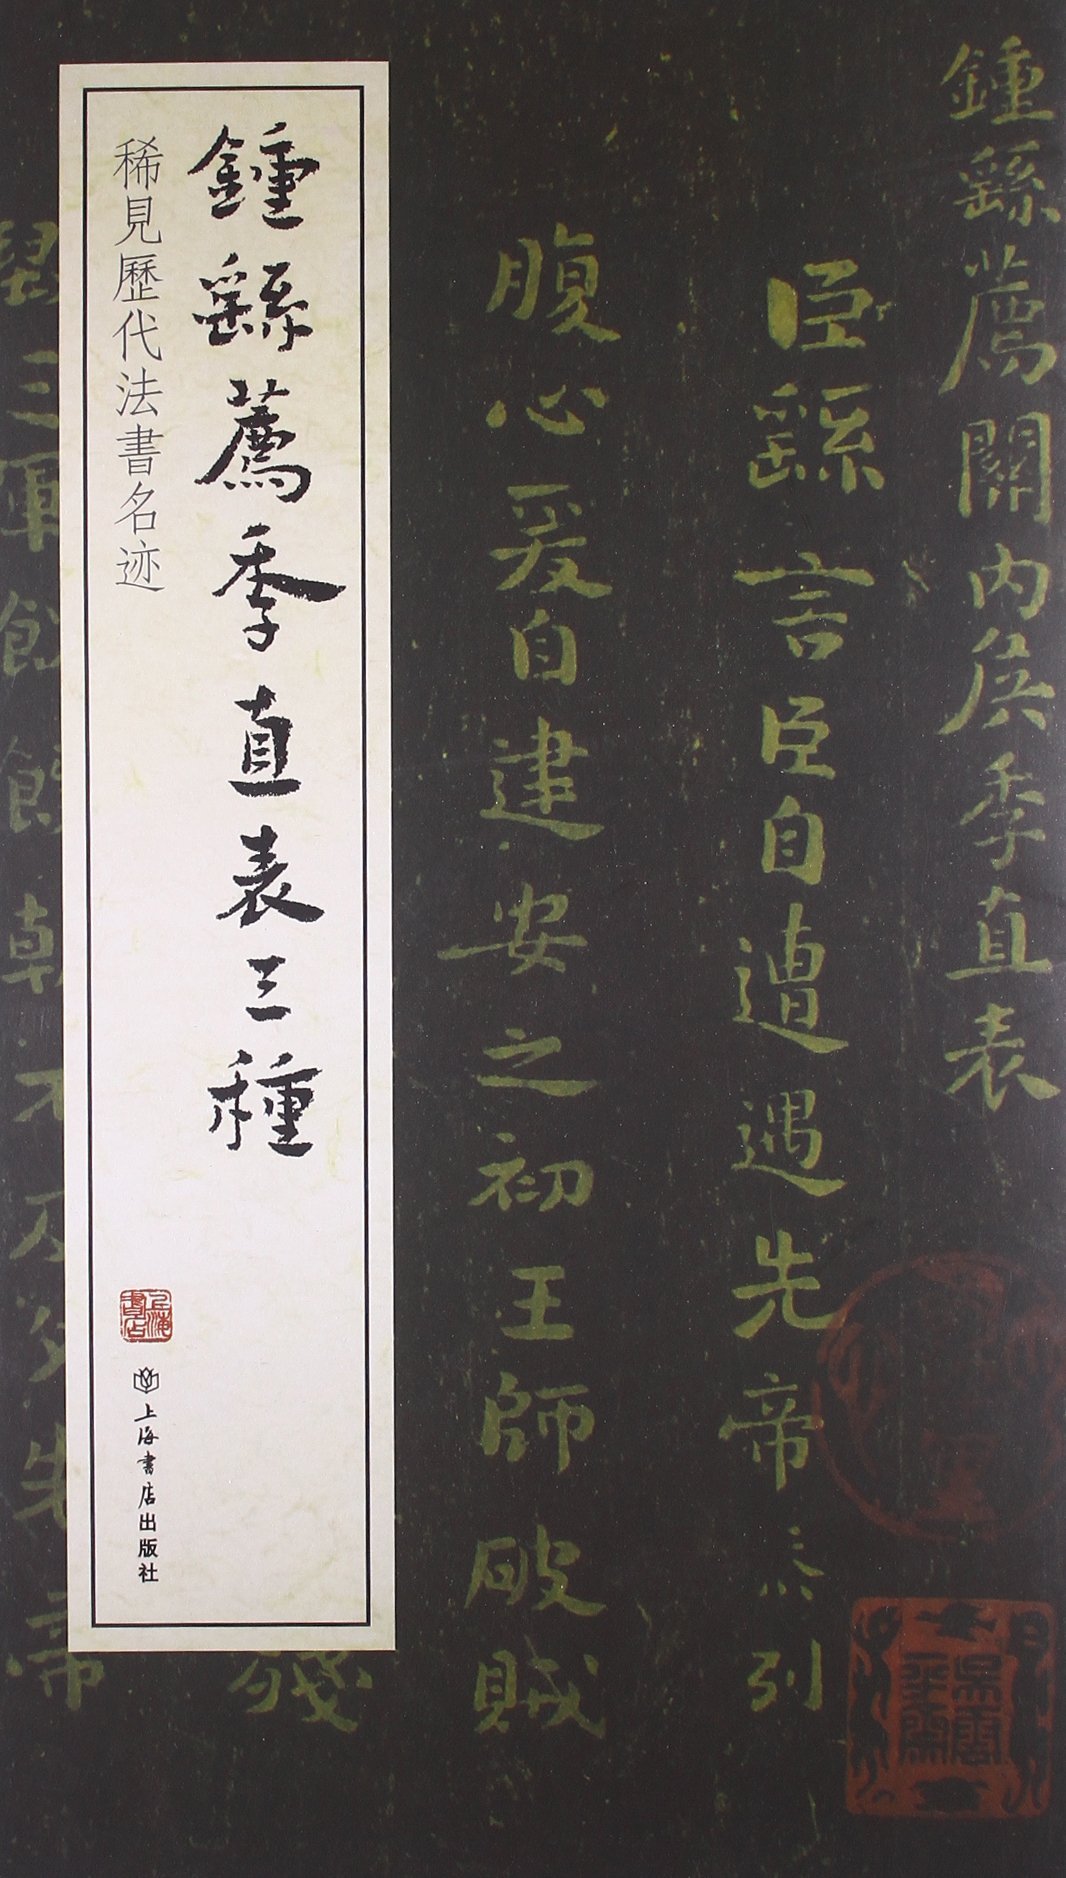 鍾繇薦關內侯季直表
臣繇言臣自遭遇先帝忝列
腹心爰自建安之初王師破賊
殘
鍾繇薦季直表三種
稀見歷代法書名迹
上海書店
上海書店出版社
毀三軍餽餉朝不及夕先帝